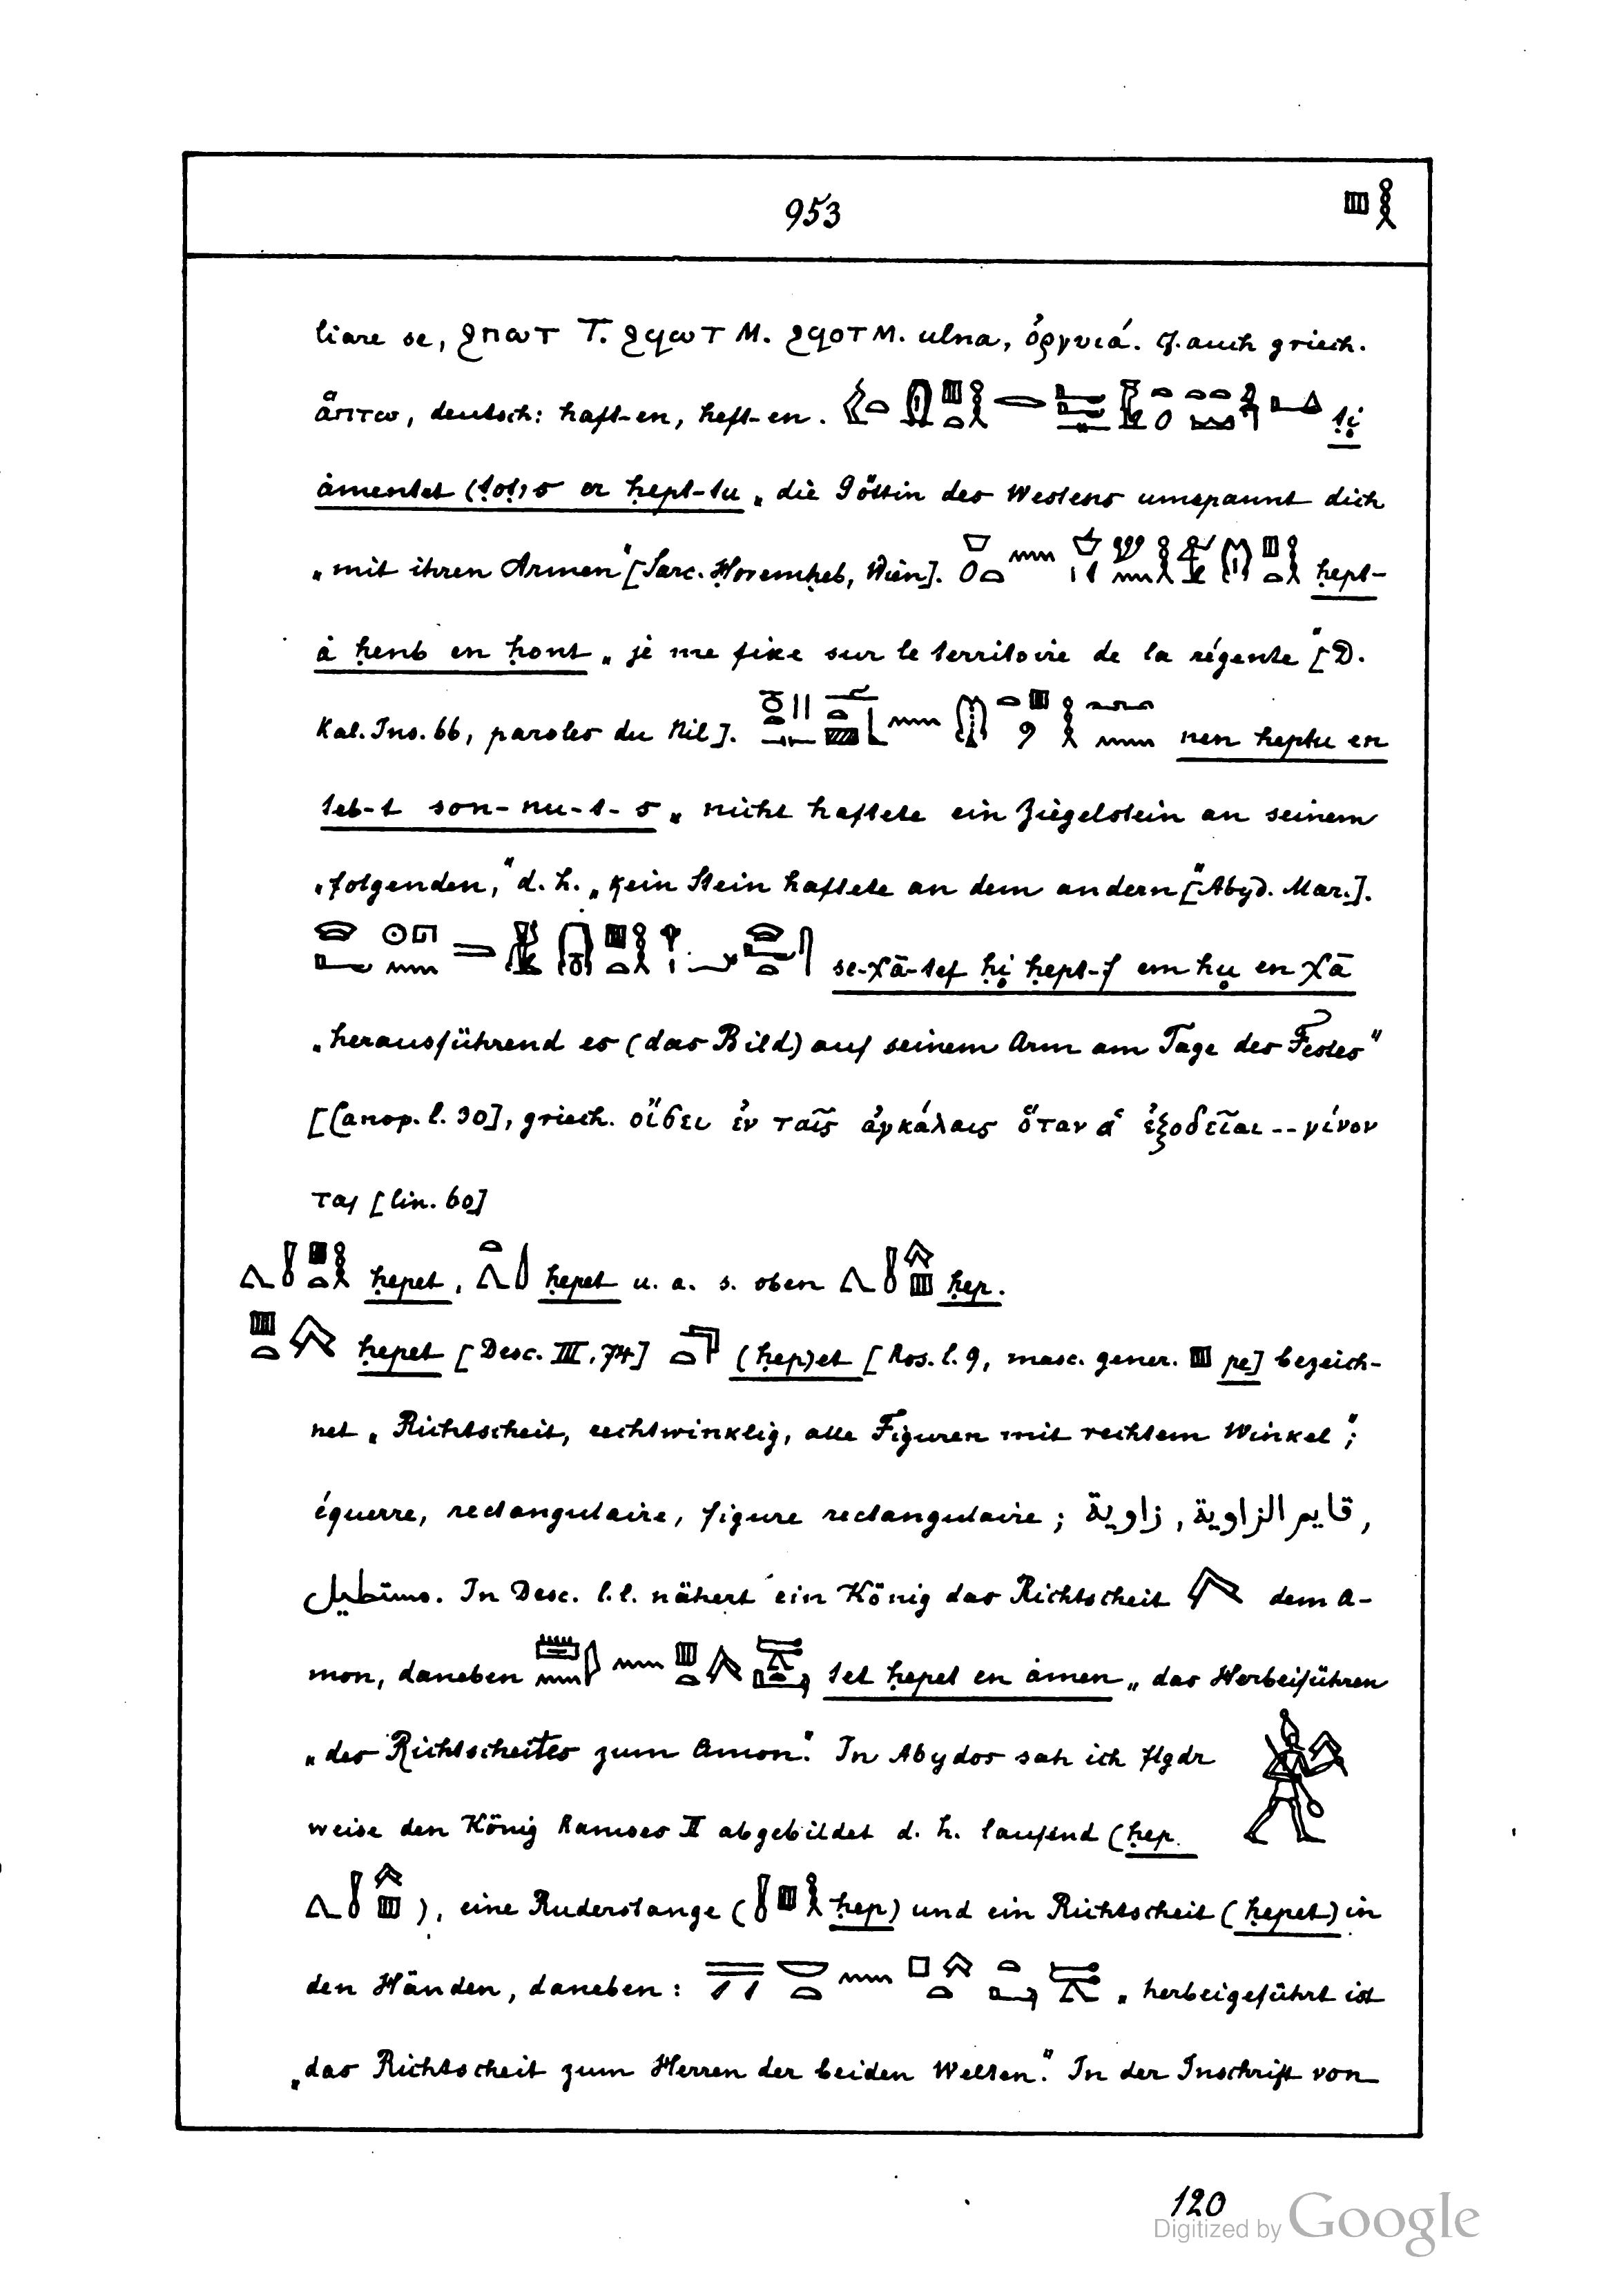 953
liare se, ϩⲡⲱⲧ T. ϩϥⲱⲧ M. ϩϥⲟⲧ M. ulna, ὀργυιά. Cf. auch griech.
ἅπτω, deutsch: haft-en, heft-en.
ȧmentet er ḥept-tu „die Göttin des Westens umspannt dich
„mit ihren Armen“ [Sarc. Ḥoremḥeb, Wien]. ḥept-
ȧ ḥenb en ḥont „je me fixe sur le territoire de la régente“ [D.
Kal. Ins. 66, paroles du Nil]. nen ḥeptu en
teb-t son-nu-t-s „nicht haftete ein Ziegelstein an seinem
„folgenden,“ d. h. „kein Stein haftete an dem andern“ [Abyd. Mar.].
se-χā-tef ḥi̯ ḥept-f em hu̯ en χā
„herausführend es (das Bild) auf seinem Arm am Tage des Festes“
[Canop. l. 30], griech. οἴσει ἐν ταῖς ἀγκάλαις ὅταν αἱ ἐξοδεῖαι -- γίνον
ται [lin. 60]
ḥepet, ḥepet u. a. s. oben ḥep.
ḥepet [Desc. III, 74] (ḥep)et [Ros. l. 9, masc. gener. pe] bezeich-
net „Richtscheit, rechtwinklig, alle Figuren mit rechtem Winkel“;
équerre, rectangulaire, figure rectangulaire; زاوية, قايم الزاوية,
مستطيل. In Desc. l.l. nähert ein König das Richtscheit dem A-
mon, daneben tet ḥepet en ȧmen „das Herbeiführen
„des Richtscheites zum Amon“. In Abydos sah ich flgdr
weise den König Ramses II abgebildet d. h. laufend (ḥep.
), eine Ruderstange (ḥep) und ein Richtscheit (ḥepet) in
den Händen, daneben: „herbeigeführt ist
„das Richtscheit zum Herren der beiden Welten“. In der Inschrift von
120
Digitized by Google